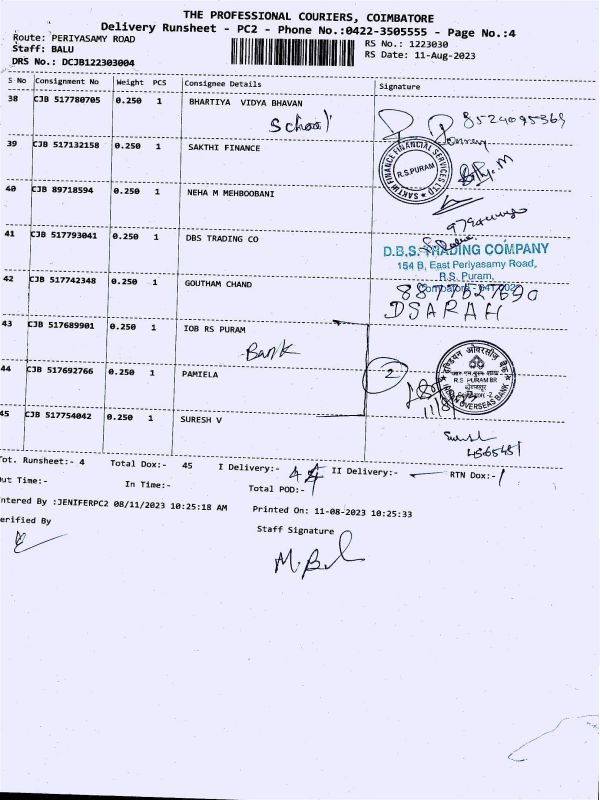 THE PROFESSIONAL COURIERS, COIMBATORE
Delivery Runsheet - PC2 - Phone No.:0422-3505555 - Page No.:4
Route: PERIYASAMY ROAD
RS No.: 1223030
Staff: BALU
RS Date: 11-Aug-2023
DRS No.: DCJB122303004
S No Consignment No Weight PCS Consignee Details Signature
38 CJB 517780705 0.250 1 BHARTIYA VIDYA BHAVAN
School
8524095369
39 CJB 517132158 0.250 1 SAKTHI FINANCE
SAKTHI FINANCE FINANCIAL SERVICES LTD
R.S.PURAM
40 CJB 89718594 0.250 1 NEHA M MEHBOOBANI
41 CJB 517793041 0.250 1 DBS TRADING CO
D.B.S. TRADING COMPANY
154 B, East Periyasamy Road,
R.S. Puram,
42 CJB 517742348 0.250 1 GOUTHAM CHAND
DSARAH
43 CJB 517689901 0.250 1 IOB RS PURAM
Bank
इण्डियन ओवरसीज़ बैंक
R.S PURAM BR
INDIAN OVERSEAS BANK
44 CJB 517692766 0.250 1 PAMIELA
2
45 CJB 517754042 0.250 1 SURESH V
Suresh
Tot. Runsheet:- 4 Total Dox:- 45 I Delivery:- 44 II Delivery:- RTN Dox:- 1
Out Time:- In Time:- Total POD:- 1
Entered By :JENIFERPC2 08/11/2023 10:25:18 AM Printed On: 11-08-2023 10:25:33
Verified By
Staff Signature